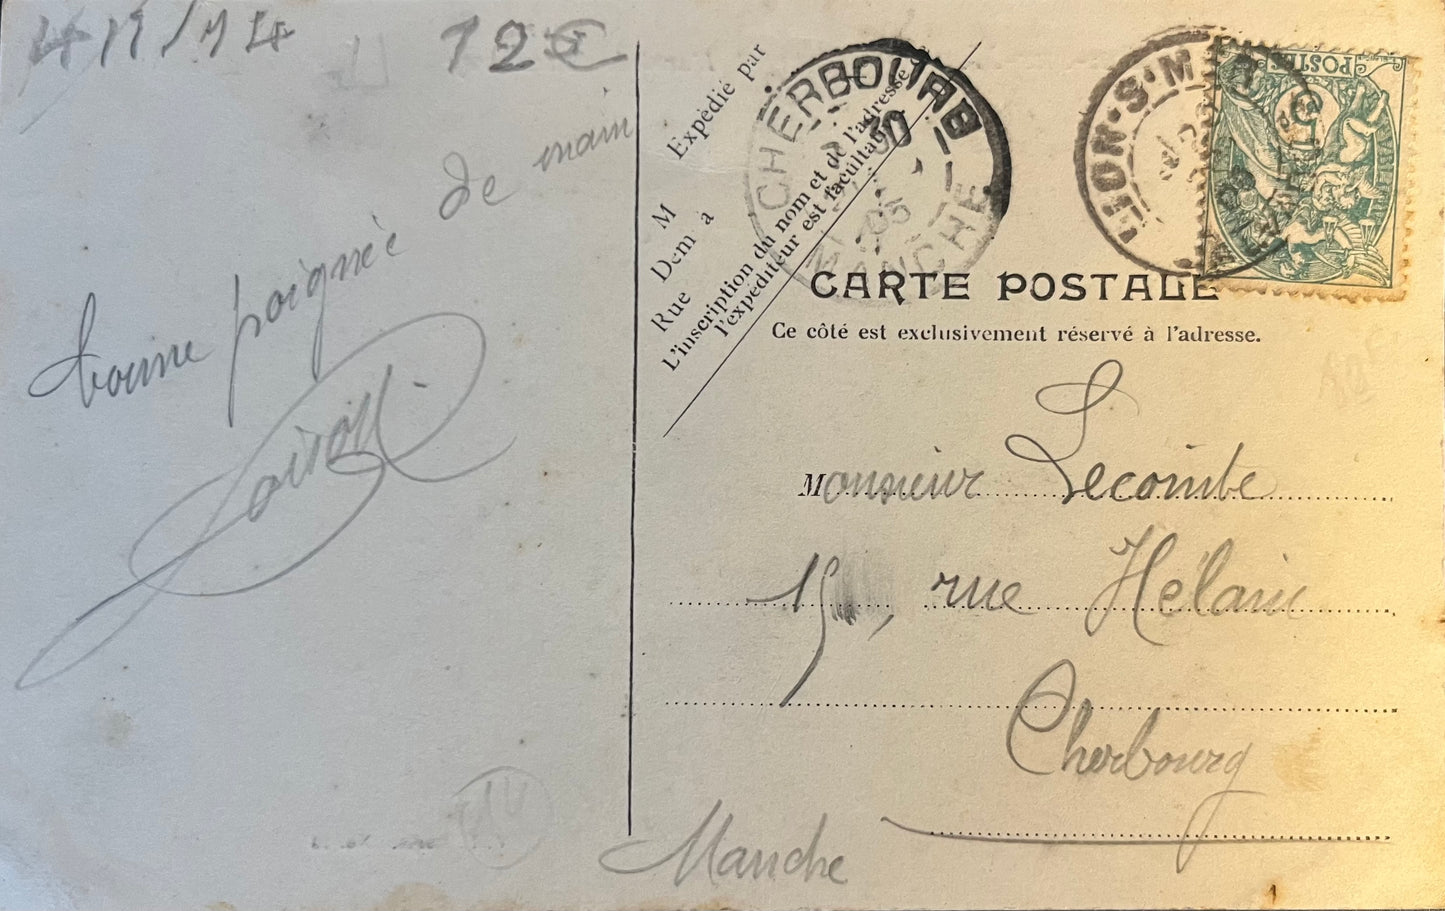 12€
bonne poignée de main
M Expédié par
Dem à
Rue
L'inscription du nom et de l'adresse de
l'expéditeur est facultative.
CHERBOURG
30
05
MANCHE
LION-S-MER
POSTES
5
CARTE POSTALE
Ce côté est exclusivement réservé à l'adresse.
Monsieur Lecomte
15, rue Hélain
Cherbourg
Manche